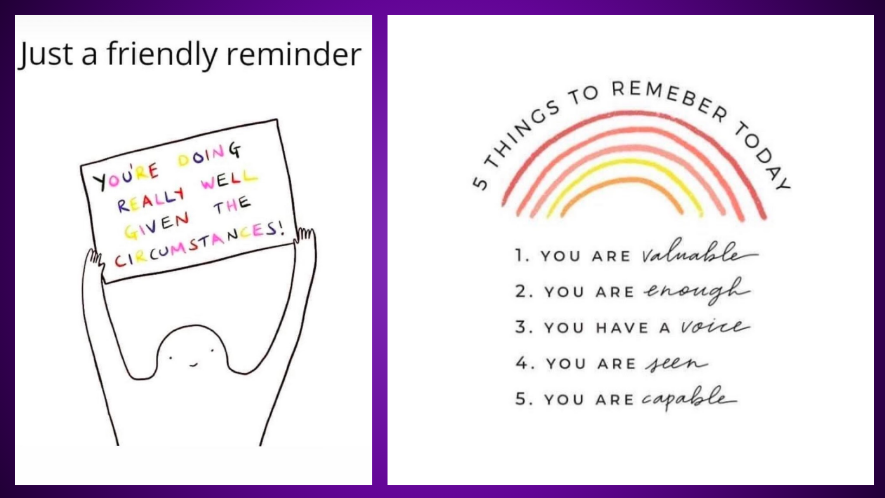 Just a friendly reminder
YOU'RE DOING
REALLY WELL
GIVEN THE
CIRCUMSTANCES!
5 THINGS TO REMEBER TODAY
1. YOU ARE valuable
2. YOU ARE enough
3. YOU HAVE A voice
4. YOU ARE seen
5. YOU ARE capable